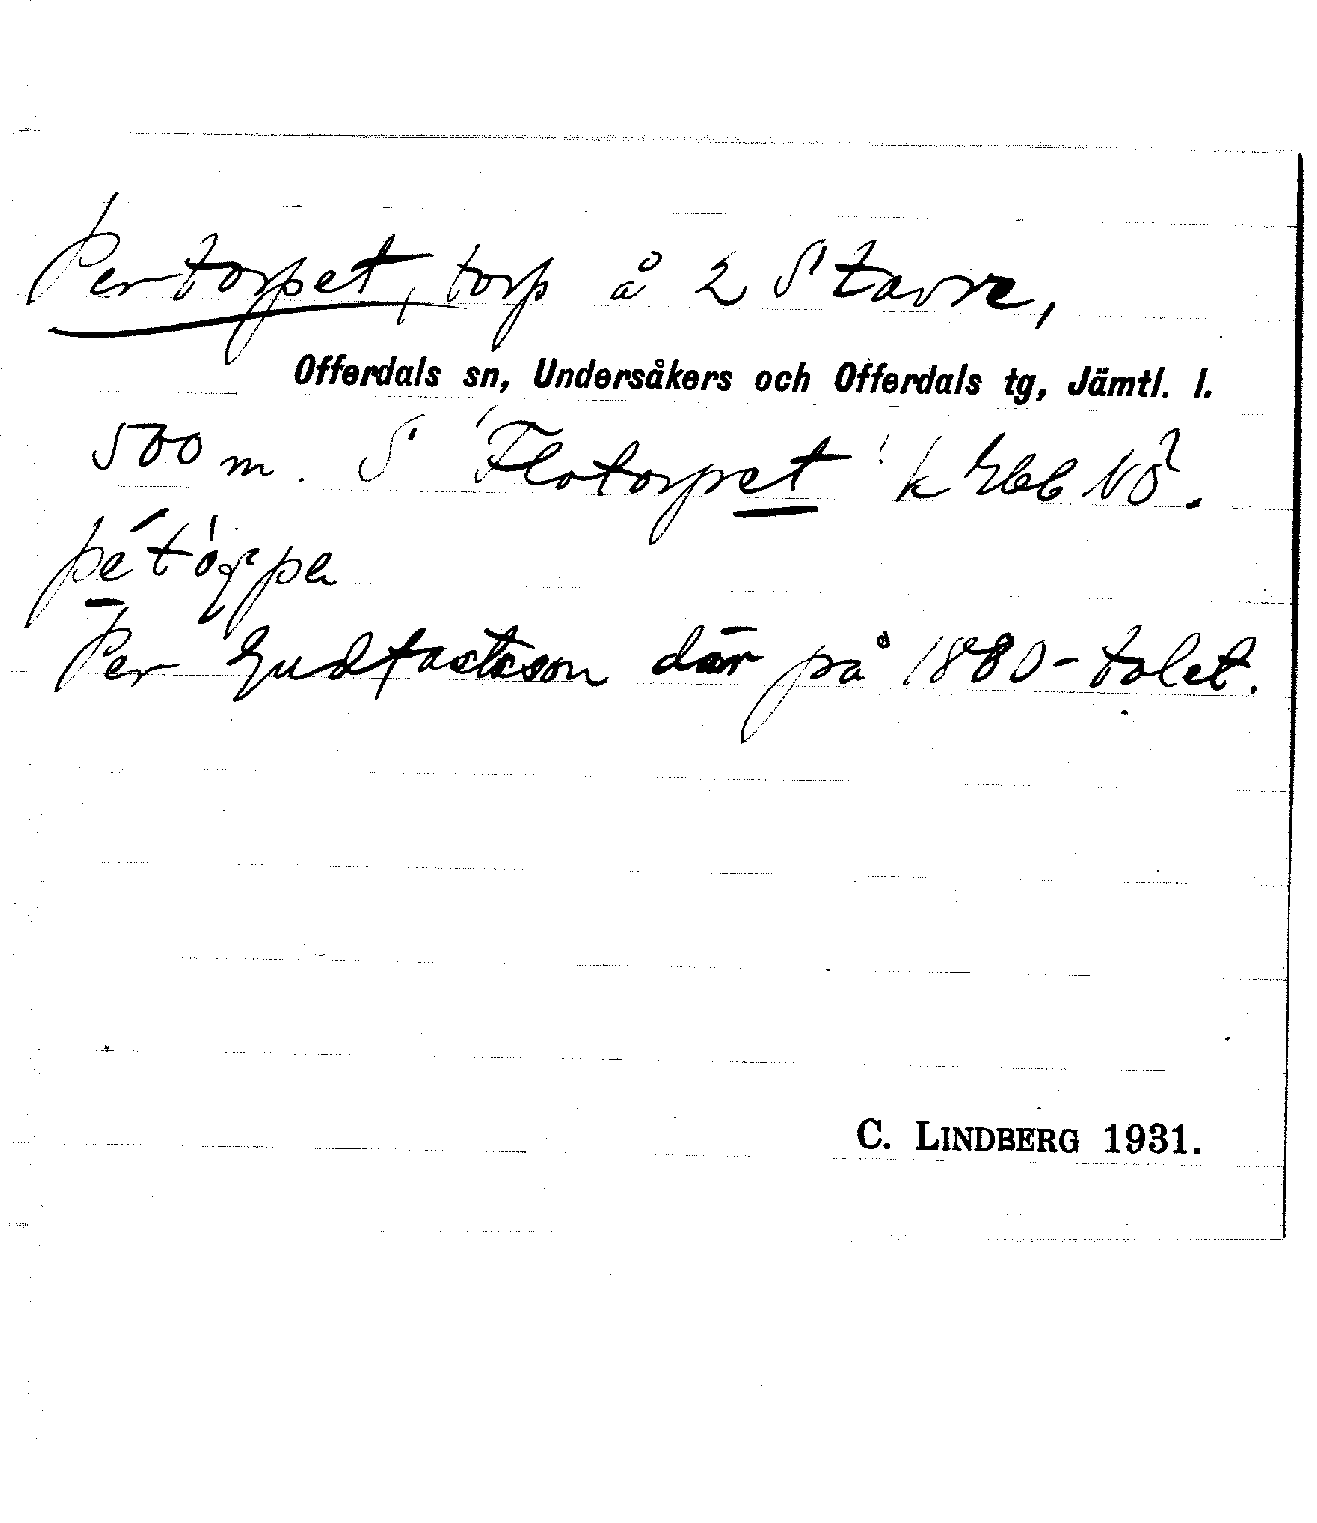 Pertorpet, torp å 2 Stavre,
Offerdals sn, Undersåkers och Offerdals tg, Jämtl. l.
500 m. S 'Flotorpet' k Ebb NÖ.
Per Gustactsson där på 1880-talet.
C. LINDBERG 1931.